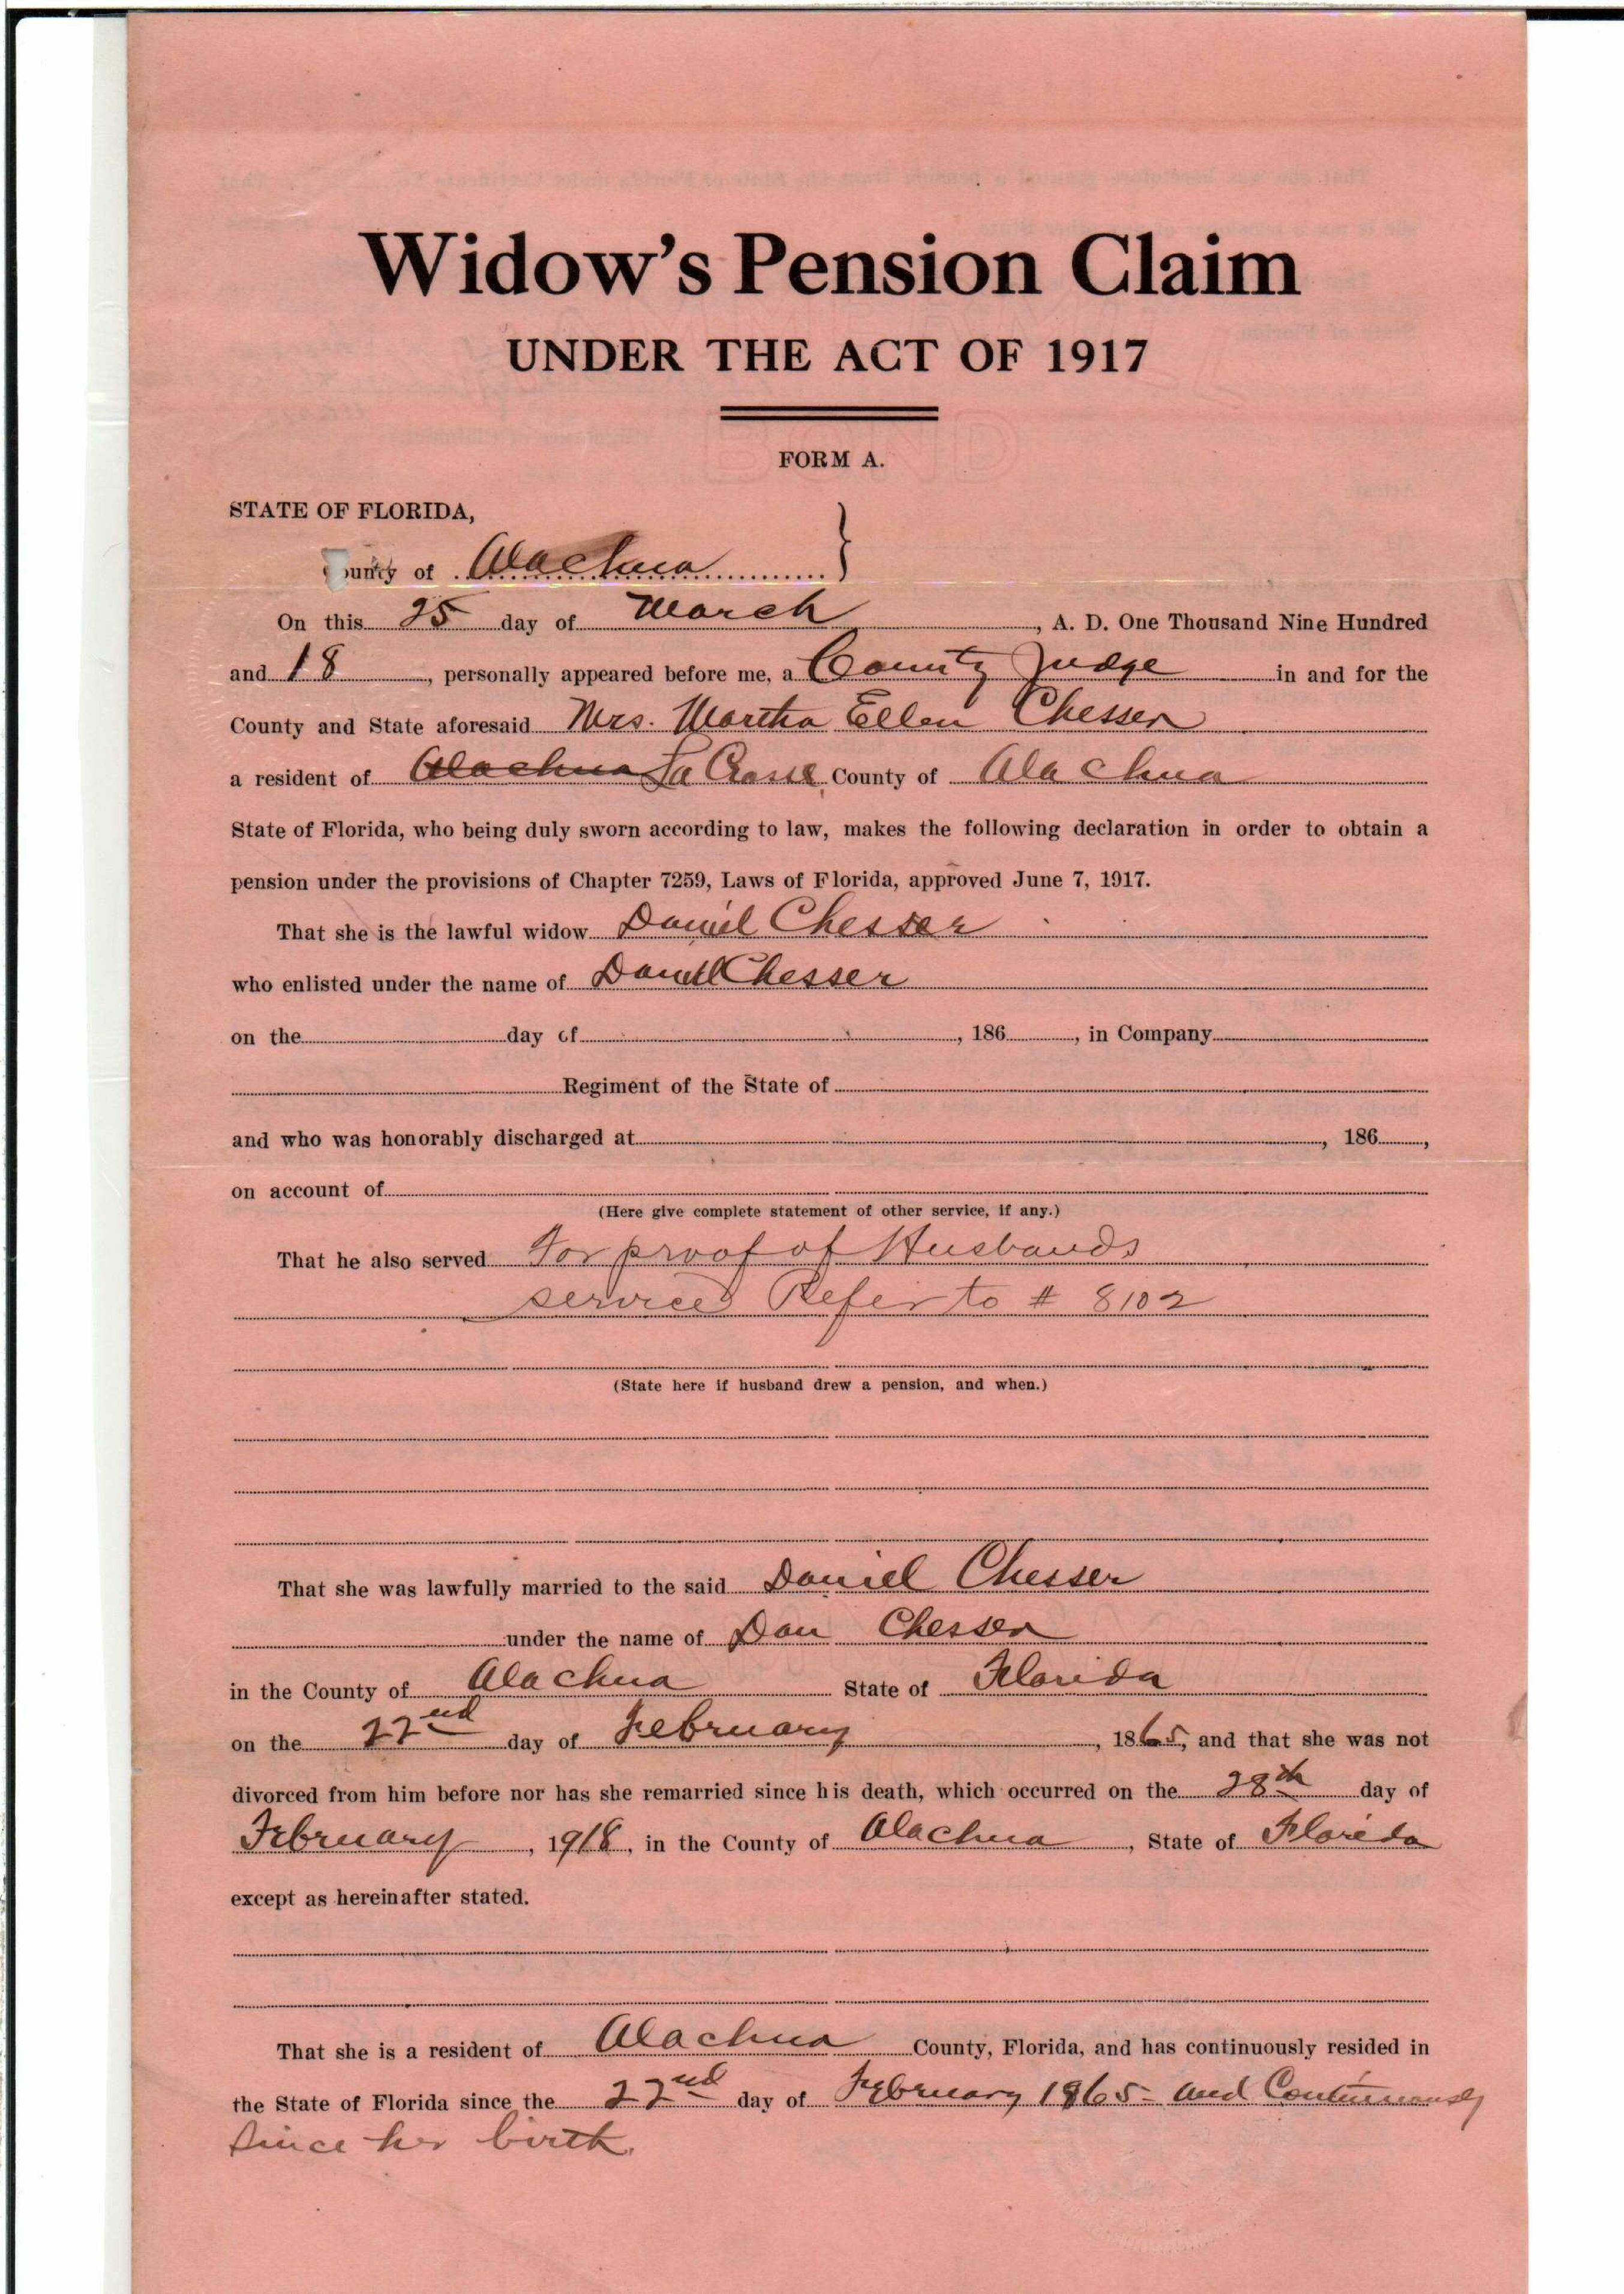 Widow's Pension Claim
UNDER THE ACT OF 1917
FORM A.
STATE OF FLORIDA,
County of Alachua
On this 25 day of March, A. D. One Thousand Nine Hundred
and 18, personally appeared before me, a County Judge in and for the
County and State aforesaid Mrs. Martha Ellen Chesser
a resident of Alachua La Crosse County of Alachua
State of Florida, who being duly sworn according to law, makes the following declaration in order to obtain a
pension under the provisions of Chapter 7259, Laws of Florida, approved June 7, 1917.
That she is the lawful widow Daniel Chesser
who enlisted under the name of Daniel Chesser
on the day of , 186 , in Company
Regiment of the State of
and who was honorably discharged at , 186 ,
on account of
(Here give complete statement of other service, if any.)
That he also served For proof of Husbands
services Refer to # 8102
(State here if husband drew a pension, and when.)
That she was lawfully married to the said Daniel Chesser
under the name of Dan Chesser
in the County of Alachua State of Florida
on the 22nd day of February, 1865, and that she was not
divorced from him before nor has she remarried since his death, which occurred on the 28th day of
February, 1918, in the County of Alachua, State of Florida
except as hereinafter stated.
That she is a resident of Alachua County, Florida, and has continuously resided in
the State of Florida since the 22nd day of February 1865- and Continuously
Since her birth.